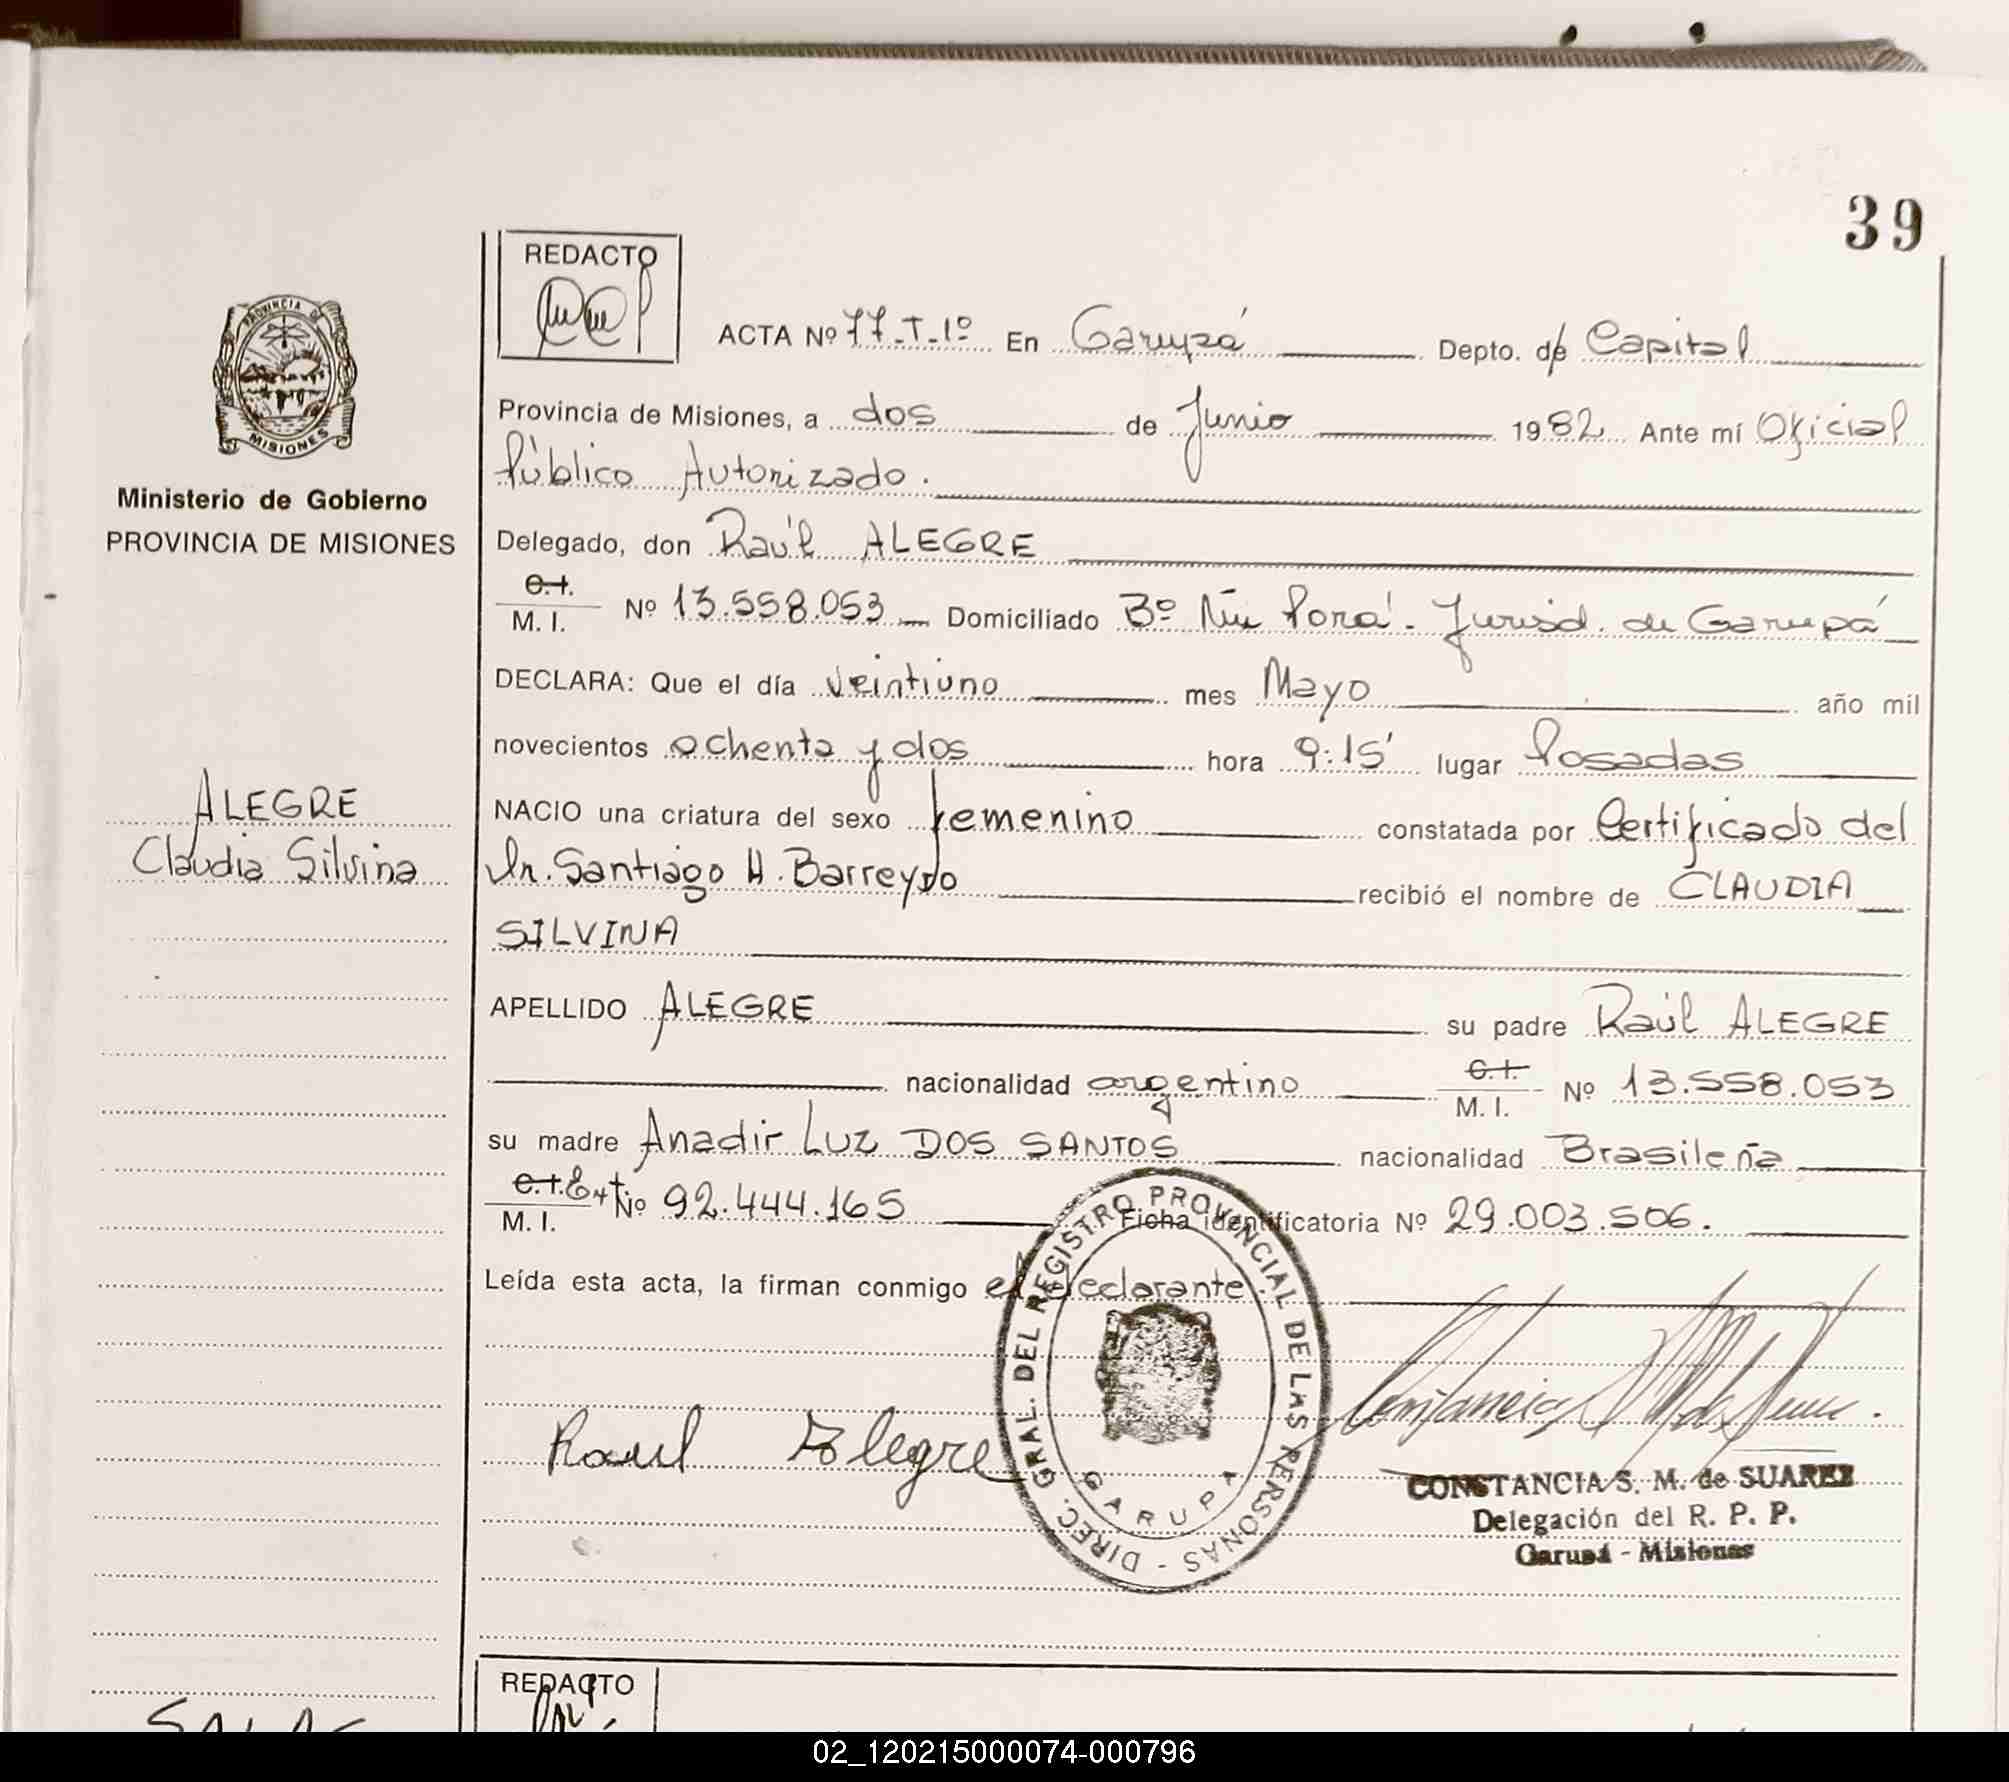 39
REDACTO
PROVINCIA DE
MISIONES
Ministerio de Gobierno
PROVINCIA DE MISIONES
ACTA Nº 77-T-1º En Garupá Depto. de Capital
Provincia de Misiones, a dos de Junio 1982 Ante mí Oficial
Público Autorizado.
Delegado, don Raúl ALEGRE
C.I.
M. I. Nº 13.558.053 Domiciliado Bº Ñu Porá - Jurisd. de Garupá
DECLARA: Que el día veintiuno mes Mayo año mil
novecientos ochenta y dos hora 9:15' lugar Posadas
ALEGRE
Claudia Silvina
NACIO una criatura del sexo femenino constatada por Certificado del
Dr. Santiago H. Barreyro recibió el nombre de CLAUDIA
SILVINA
APELLIDO ALEGRE su padre Raúl ALEGRE
nacionalidad argentino C.I.
M. I. Nº 13.558.053
su madre Anadir Luz DOS SANTOS nacionalidad Brasileña
C.I. Ext.
M. I. Nº 92.444.165 Ficha identificatoria Nº 29.003.506.
Leída esta acta, la firman conmigo el declarante
Raul Alegre
DIREC. GRAL. DEL REGISTRO PROVINCIAL DE LAS PERSONAS -
GARUPA
CONSTANCIA S. M. de SUAREZ
Delegación del R. P. P.
Garupá - Misiones
REDACTO
02_120215000074-000796